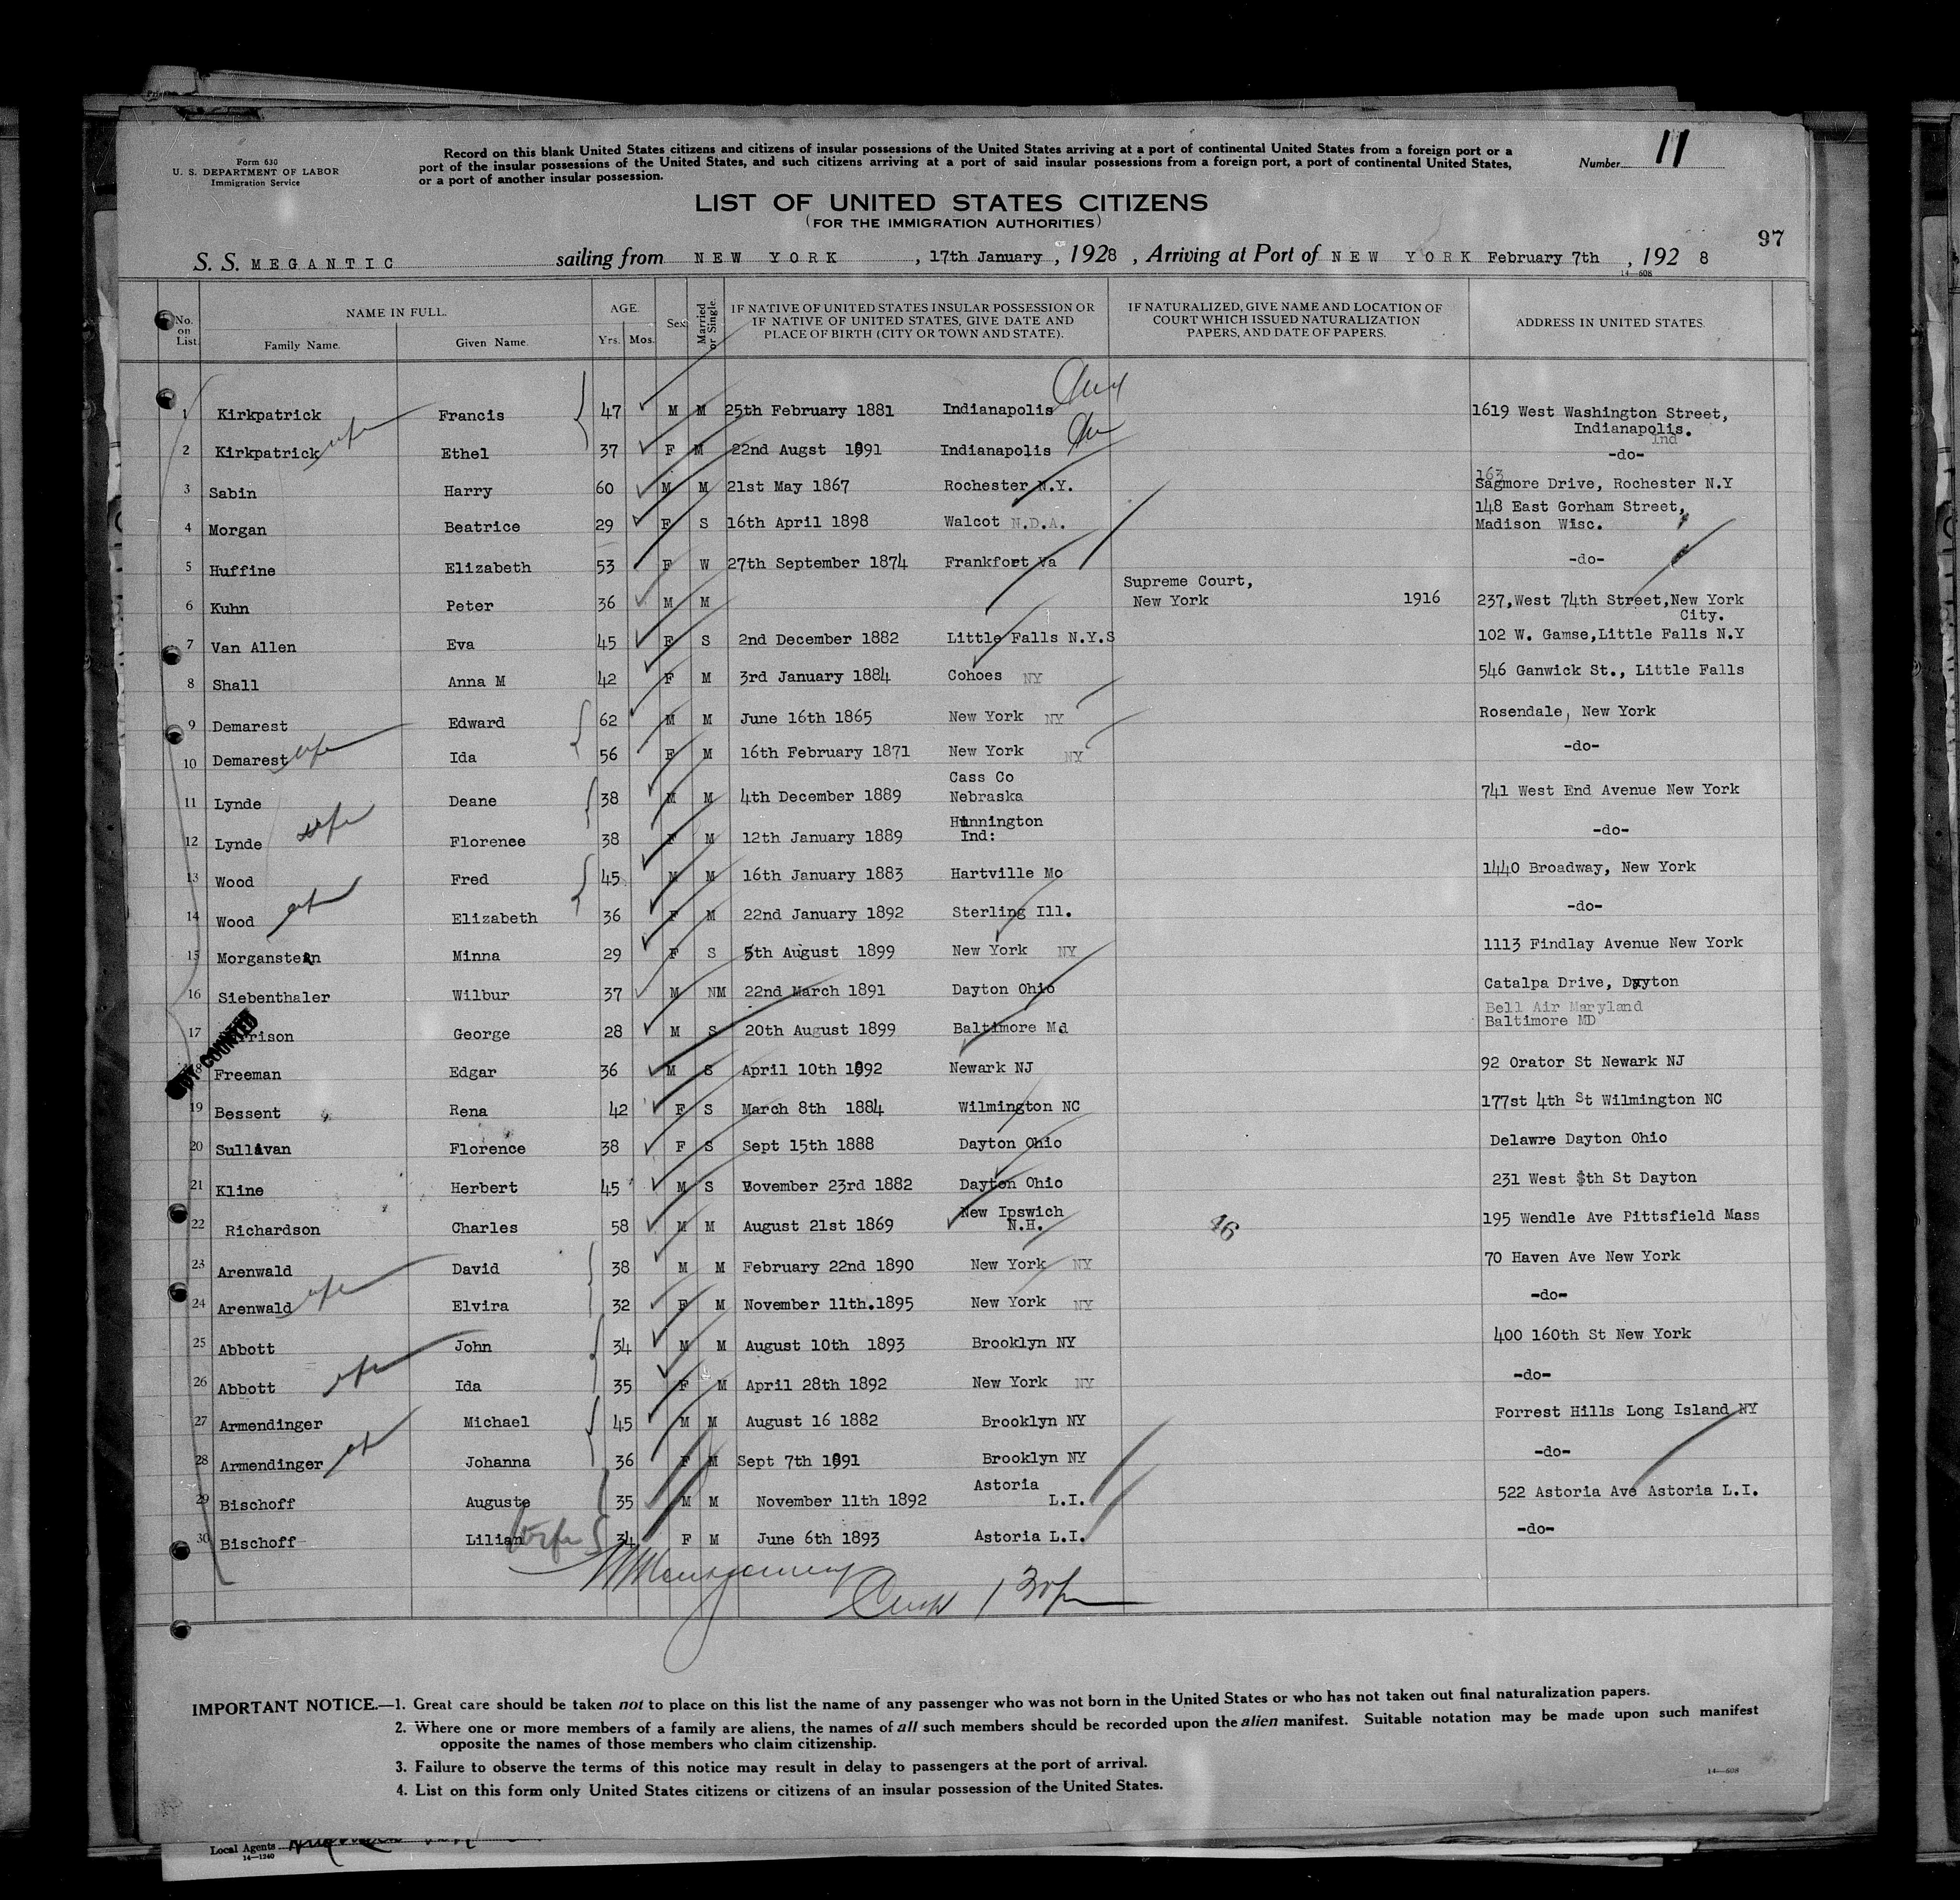 Form 630
U. S. DEPARTMENT OF LABOR
Immigration Service
Record on this blank United States citizens and citizens of insular possessions of the United States arriving at a port of continental United States from a foreign port or a
port of the insular possessions of the United States, and such citizens arriving at a port of said insular possessions from a foreign port, a port of continental United States,
or a port of another insular possession.
Number 11
LIST OF UNITED STATES CITIZENS
(FOR THE IMMIGRATION AUTHORITIES)
97
S. S. MEGANTIC sailing from NEW YORK, 17th January, 1928, Arriving at Port of NEW YORK February 7th, 1928
14-608
No. on List. NAME IN FULL. Family Name. Given Name. AGE. Yrs. Mos. Sex Married or Single. IF NATIVE OF UNITED STATES INSULAR POSSESSION OR IF NATIVE OF UNITED STATES, GIVE DATE AND PLACE OF BIRTH (CITY OR TOWN AND STATE). IF NATURALIZED, GIVE NAME AND LOCATION OF COURT WHICH ISSUED NATURALIZATION PAPERS, AND DATE OF PAPERS. ADDRESS IN UNITED STATES.
1 Kirkpatrick Francis 47 M M 25th February 1881 Indianapolis 1619 West Washington Street, Indianapolis. Ind
2 Kirkpatrick wife Ethel 37 F M 22nd Augst 1891 Indianapolis -do-
3 Sabin Harry 60 M M 21st May 1867 Rochester N.Y. 163 Sagmore Drive, Rochester N.Y
4 Morgan Beatrice 29 F S 16th April 1898 Walcot N.D.A. 148 East Gorham Street, Madison Wisc.
5 Huffine Elizabeth 53 F W 27th September 1874 Frankfort Va -do-
6 Kuhn Peter 36 M M Supreme Court, New York 1916 237,West 74th Street,New York City.
7 Van Allen Eva 45 F S 2nd December 1882 Little Falls N.Y.S 102 W. Gamse,Little Falls N.Y
8 Shall Anna M 42 F M 3rd January 1884 Cohoes NY 546 Ganwick St., Little Falls
9 Demarest Edward 62 M M June 16th 1865 New York NY Rosendale, New York
10 Demarest wife Ida 56 F M 16th February 1871 New York NY -do-
11 Lynde Deane 38 M M 4th December 1889 Cass Co Nebraska 741 West End Avenue New York
12 Lynde wife Florenee 38 F M 12th January 1889 Hunnington Ind: -do-
13 Wood Fred 45 M M 16th January 1883 Hartville Mo 1440 Broadway, New York
14 Wood Elizabeth 36 F M 22nd January 1892 Sterling Ill. -do-
15 Morganstern Minna 29 F S 5th August 1899 New York NY 1113 Findlay Avenue New York
16 Siebenthaler Wilbur 37 M NM 22nd March 1891 Dayton Ohio Catalpa Drive, Dayton
17 rison George 28 M S 20th August 1899 Baltimore Md Bell Air Maryland Baltimore MD
COUNTED
18 Freeman Edgar 36 M S April 10th 1892 Newark NJ 92 Orator St Newark NJ
19 Bessent Rena 42 F S March 8th 1884 Wilmington NC 177st 4th St Wilmington NC
20 Sullivan Florence 38 F S Sept 15th 1888 Dayton Ohio Delawre Dayton Ohio
21 Kline Herbert 45 M S November 23rd 1882 Dayton Ohio 231 West $th St Dayton
22 Richardson Charles 58 M M August 21st 1869 New Ipswich N.H. 195 Wendle Ave Pittsfield Mass
23 Arenwald David 38 M M February 22nd 1890 New York NY 70 Haven Ave New York
24 Arenwald wife Elvira 32 F M November 11th.1895 New York NY -do-
25 Abbott John 34 M M August 10th 1893 Brooklyn NY 400 160th St New York
26 Abbott wife Ida 35 F M April 28th 1892 New York NY -do-
27 Armendinger Michael 45 M M August 16 1882 Brooklyn NY Forrest Hills Long Island NY
28 Armendinger Johanna 36 F M Sept 7th 1891 Brooklyn NY -do-
29 Bischoff Auguste 35 M M November 11th 1892 Astoria L.I. 522 Astoria Ave Astoria L.I.
30 Bischoff Lilian wife 34 F M June 6th 1893 Astoria L.I. -do-
IMPORTANT NOTICE.—1. Great care should be taken not to place on this list the name of any passenger who was not born in the United States or who has not taken out final naturalization papers.
2. Where one or more members of a family are aliens, the names of all such members should be recorded upon the alien manifest. Suitable notation may be made upon such manifest
opposite the names of those members who claim citizenship.
3. Failure to observe the terms of this notice may result in delay to passengers at the port of arrival.
4. List on this form only United States citizens or citizens of an insular possession of the United States.
14-608
Local Agents
14-1240